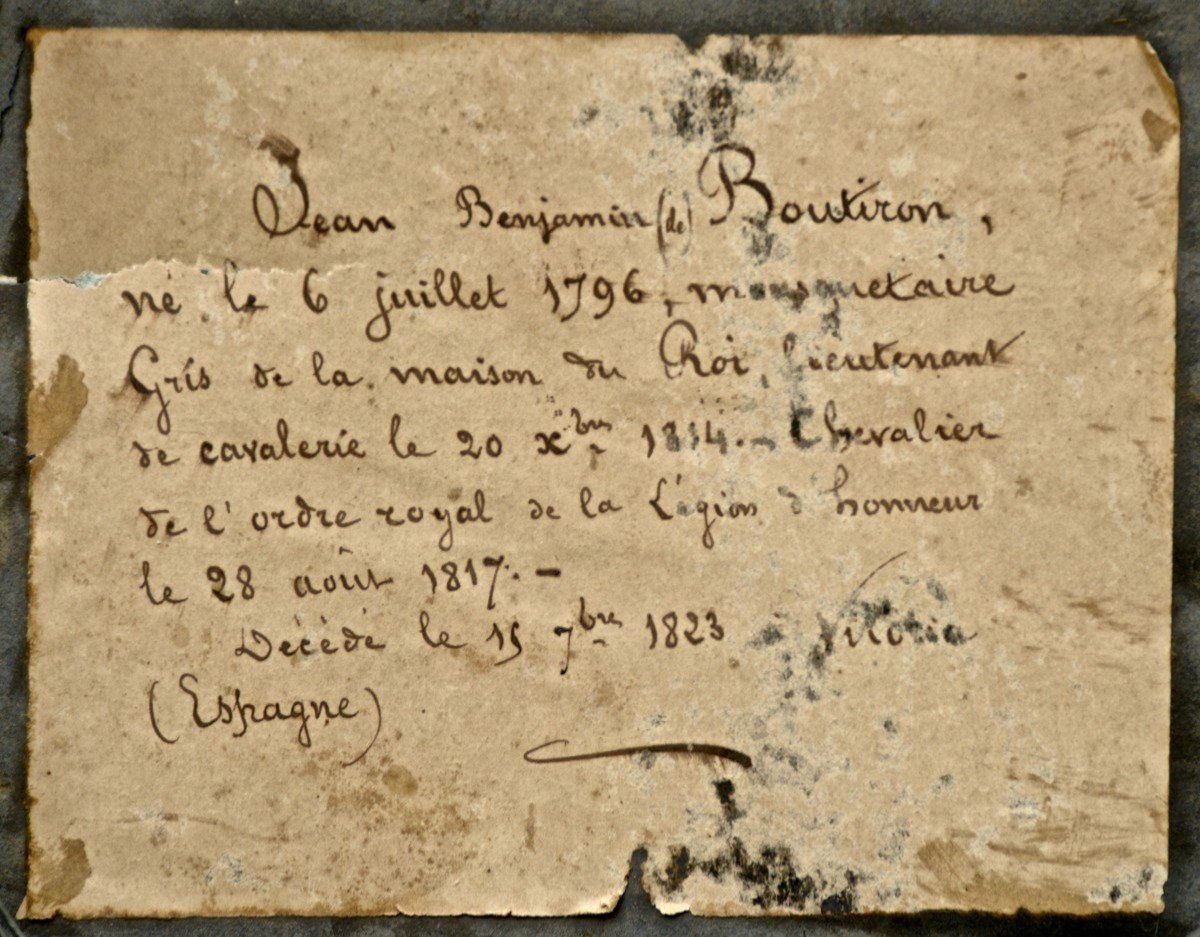 Jean Benjamin (de) Boutiron,
né le 6 juillet 1796, mousquetaire
Gris de la maison du Roi, lieutenant
de cavalerie le 20 xbre 1814. - Chevalier
de l'ordre royal de la Légion d'honneur
le 28 août 1817. -
Décédé le 15 7bre 1823 Vitoria
(Espagne)